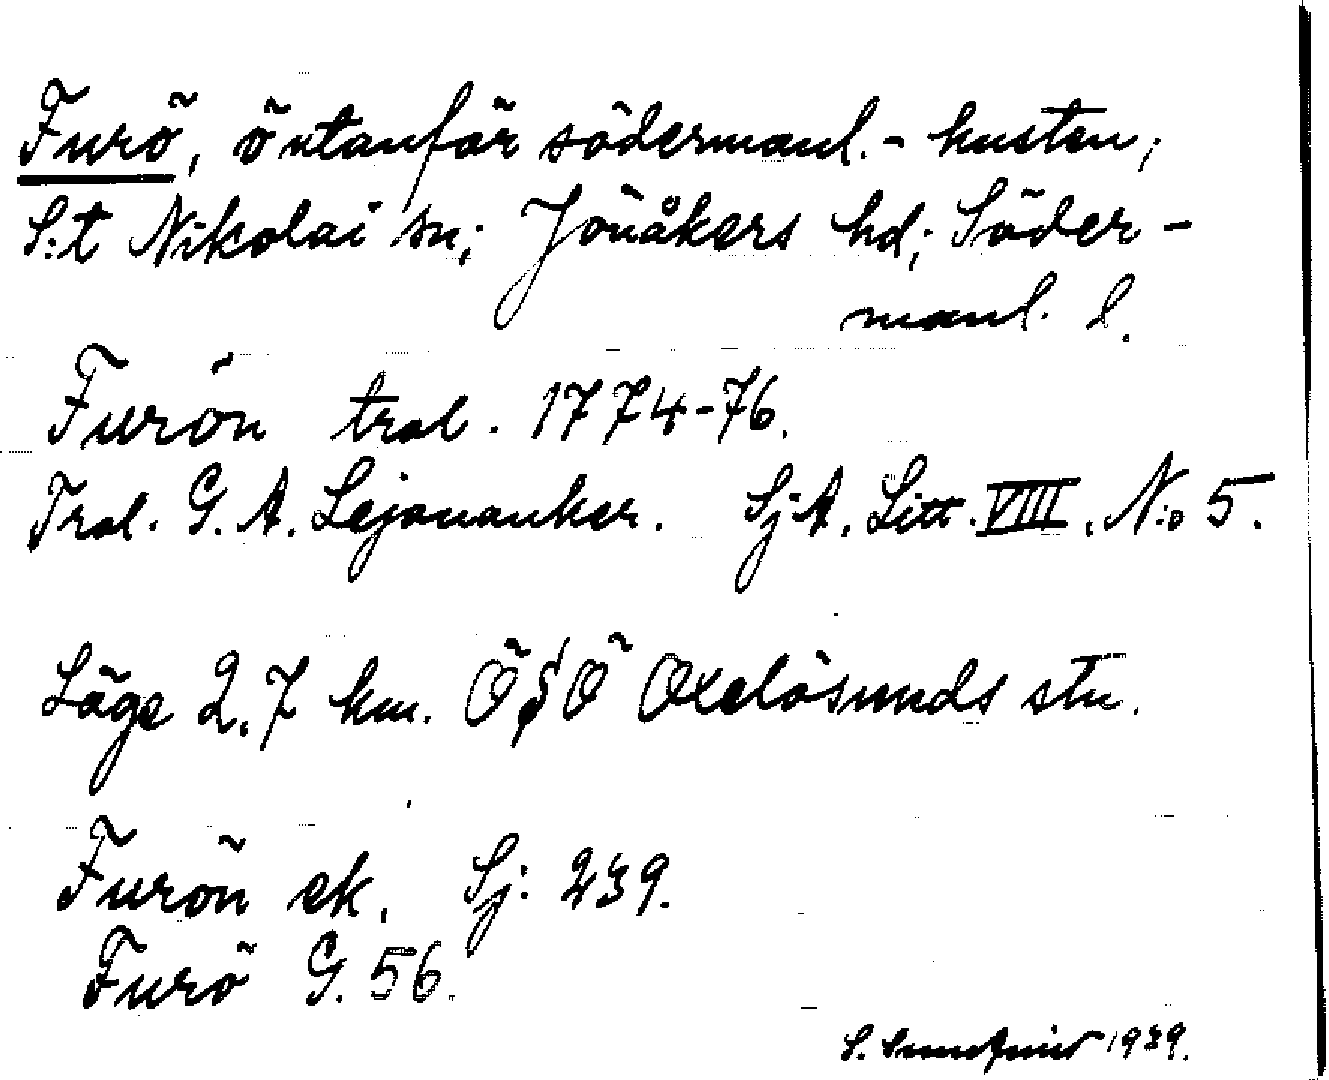 Furö, ö utanför södermanl.- kusten;
S:t Nikolai sn; Jönåkers hd; Söder-
manl. l.
Furön tral. 1774-76.
Tral. G. A. Lejonanker. Sj A. Litt. VIII. N:o 5.
Läge 2.7 km. ÖSÖ Oxelösunds stn.
Furön ek. Sj: 239.
Furö G. 56.
S. 1939.